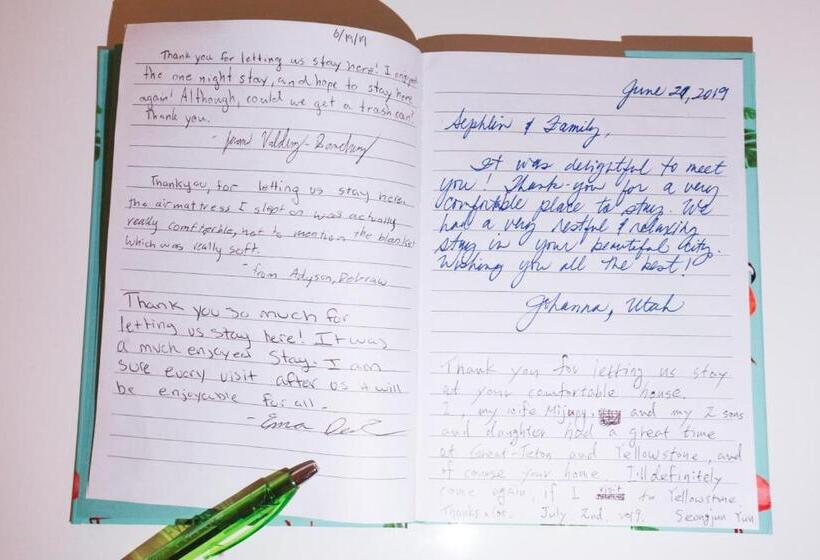 6/19/19
Thank you for letting us stay here! I enjoyed
the one night stay, and hope to stay here
again! Although, could we get a trash can?
Thank you.
- from
Thankyou, for letting us stay here,
the airmattress I slept on was actually
really comfterble, not to mention the blanket
which was really soft.
- from Adyson,
Thank you so much for
letting us stay here! It was
a much enjoyed stay. I am
sure every visit after us it will
be enjoyable for all.
- Ema
June 29, 2019
Sephlin & Family,
It was delightful to meet
you! Thank-you for a very
comfortable place to stay. We
had a very restful & relaxing
stay in your beautiful city.
Wishing you all the best!
Johanna, Utah
Thank you for letting us stay
at your comfortable house.
I, my wife Mijung, and my 2 sons
and daughter had a great time
at Great-Teton and Yellowstone, and
of course your home. I'll definitely
come again, if I visit to Yellowstone
Thanks alot. July 2nd. 2019. Seongjun Yun